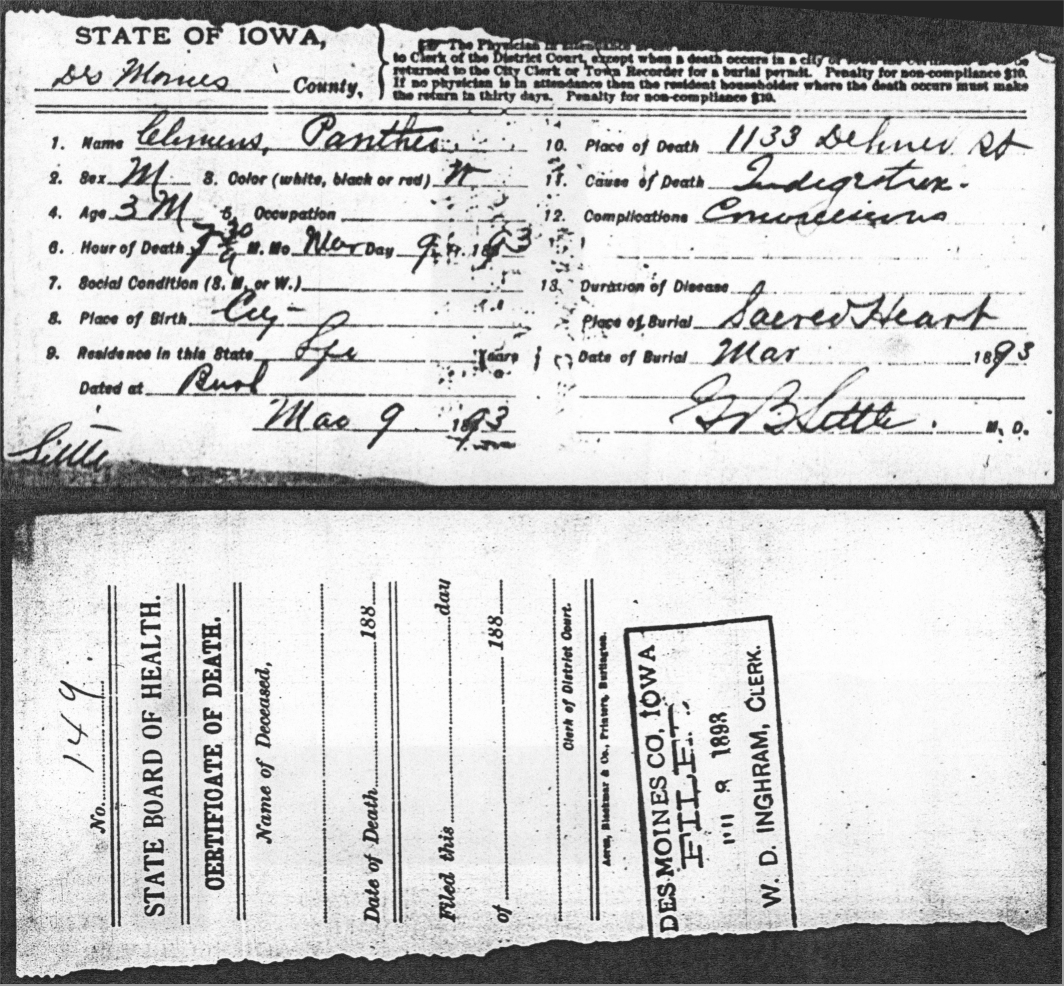 STATE OF IOWA,
Des Moines County,
The Physician in attendance
to Clerk of the District Court, except when a death occurs in a city or town
returned to the City Clerk or Town Recorder for a burial permit. Penalty for non-compliance $10.
If no physician is in attendance then the resident householder where the death occurs must make
the return in thirty days. Penalty for non-compliance $10.
1. Name Clemens, Panther
2. Sex M 3. Color (white, black or red) W
4. Age 3 M 5 Occupation
6. Hour of Death 7 30 M. Mo. Mar Day 9 1893
7. Social Condition (S. M. or W.)
8. Place of Birth City
9. Residence in this State Life Years
Dated at Burl
Mar 9 1893
Little
10. Place of Death 1133 Dehner St
11. Cause of Death Indigestion.
12. Complications Convulsions
13. Duration of Disease
Place of Burial Sacred Heart
Date of Burial Mar 1893
G B Little. M. D.
No. 149.
STATE BOARD OF HEALTH.
CERTIFICATE OF DEATH.
Name of Deceased,
Date of Death 188
Filed this day
of 188
Clerk of District Court.
Acres, Blackmar & Co., Printers, Burlington.
DES MOINES CO, IOWA
FILED
1893
W. D. INGHRAM, CLERK.